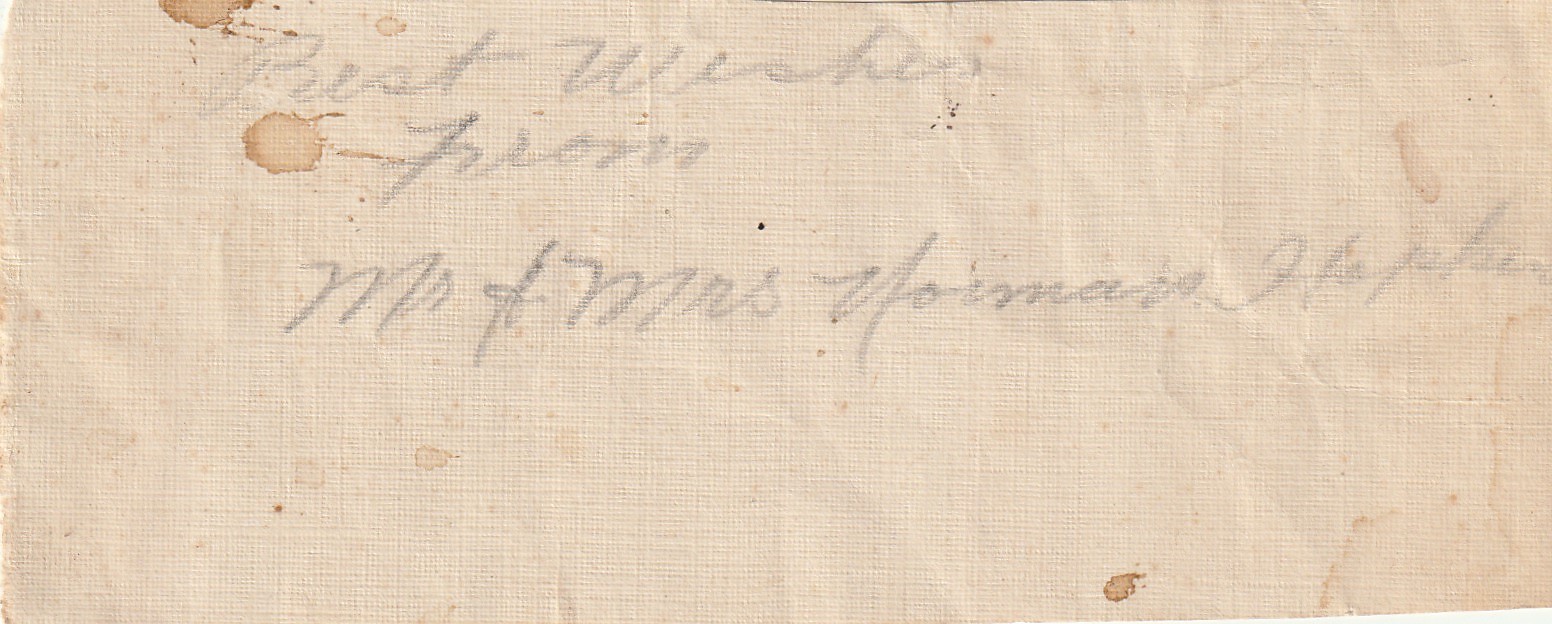 Best Wishes
from
Mr & Mrs Norman